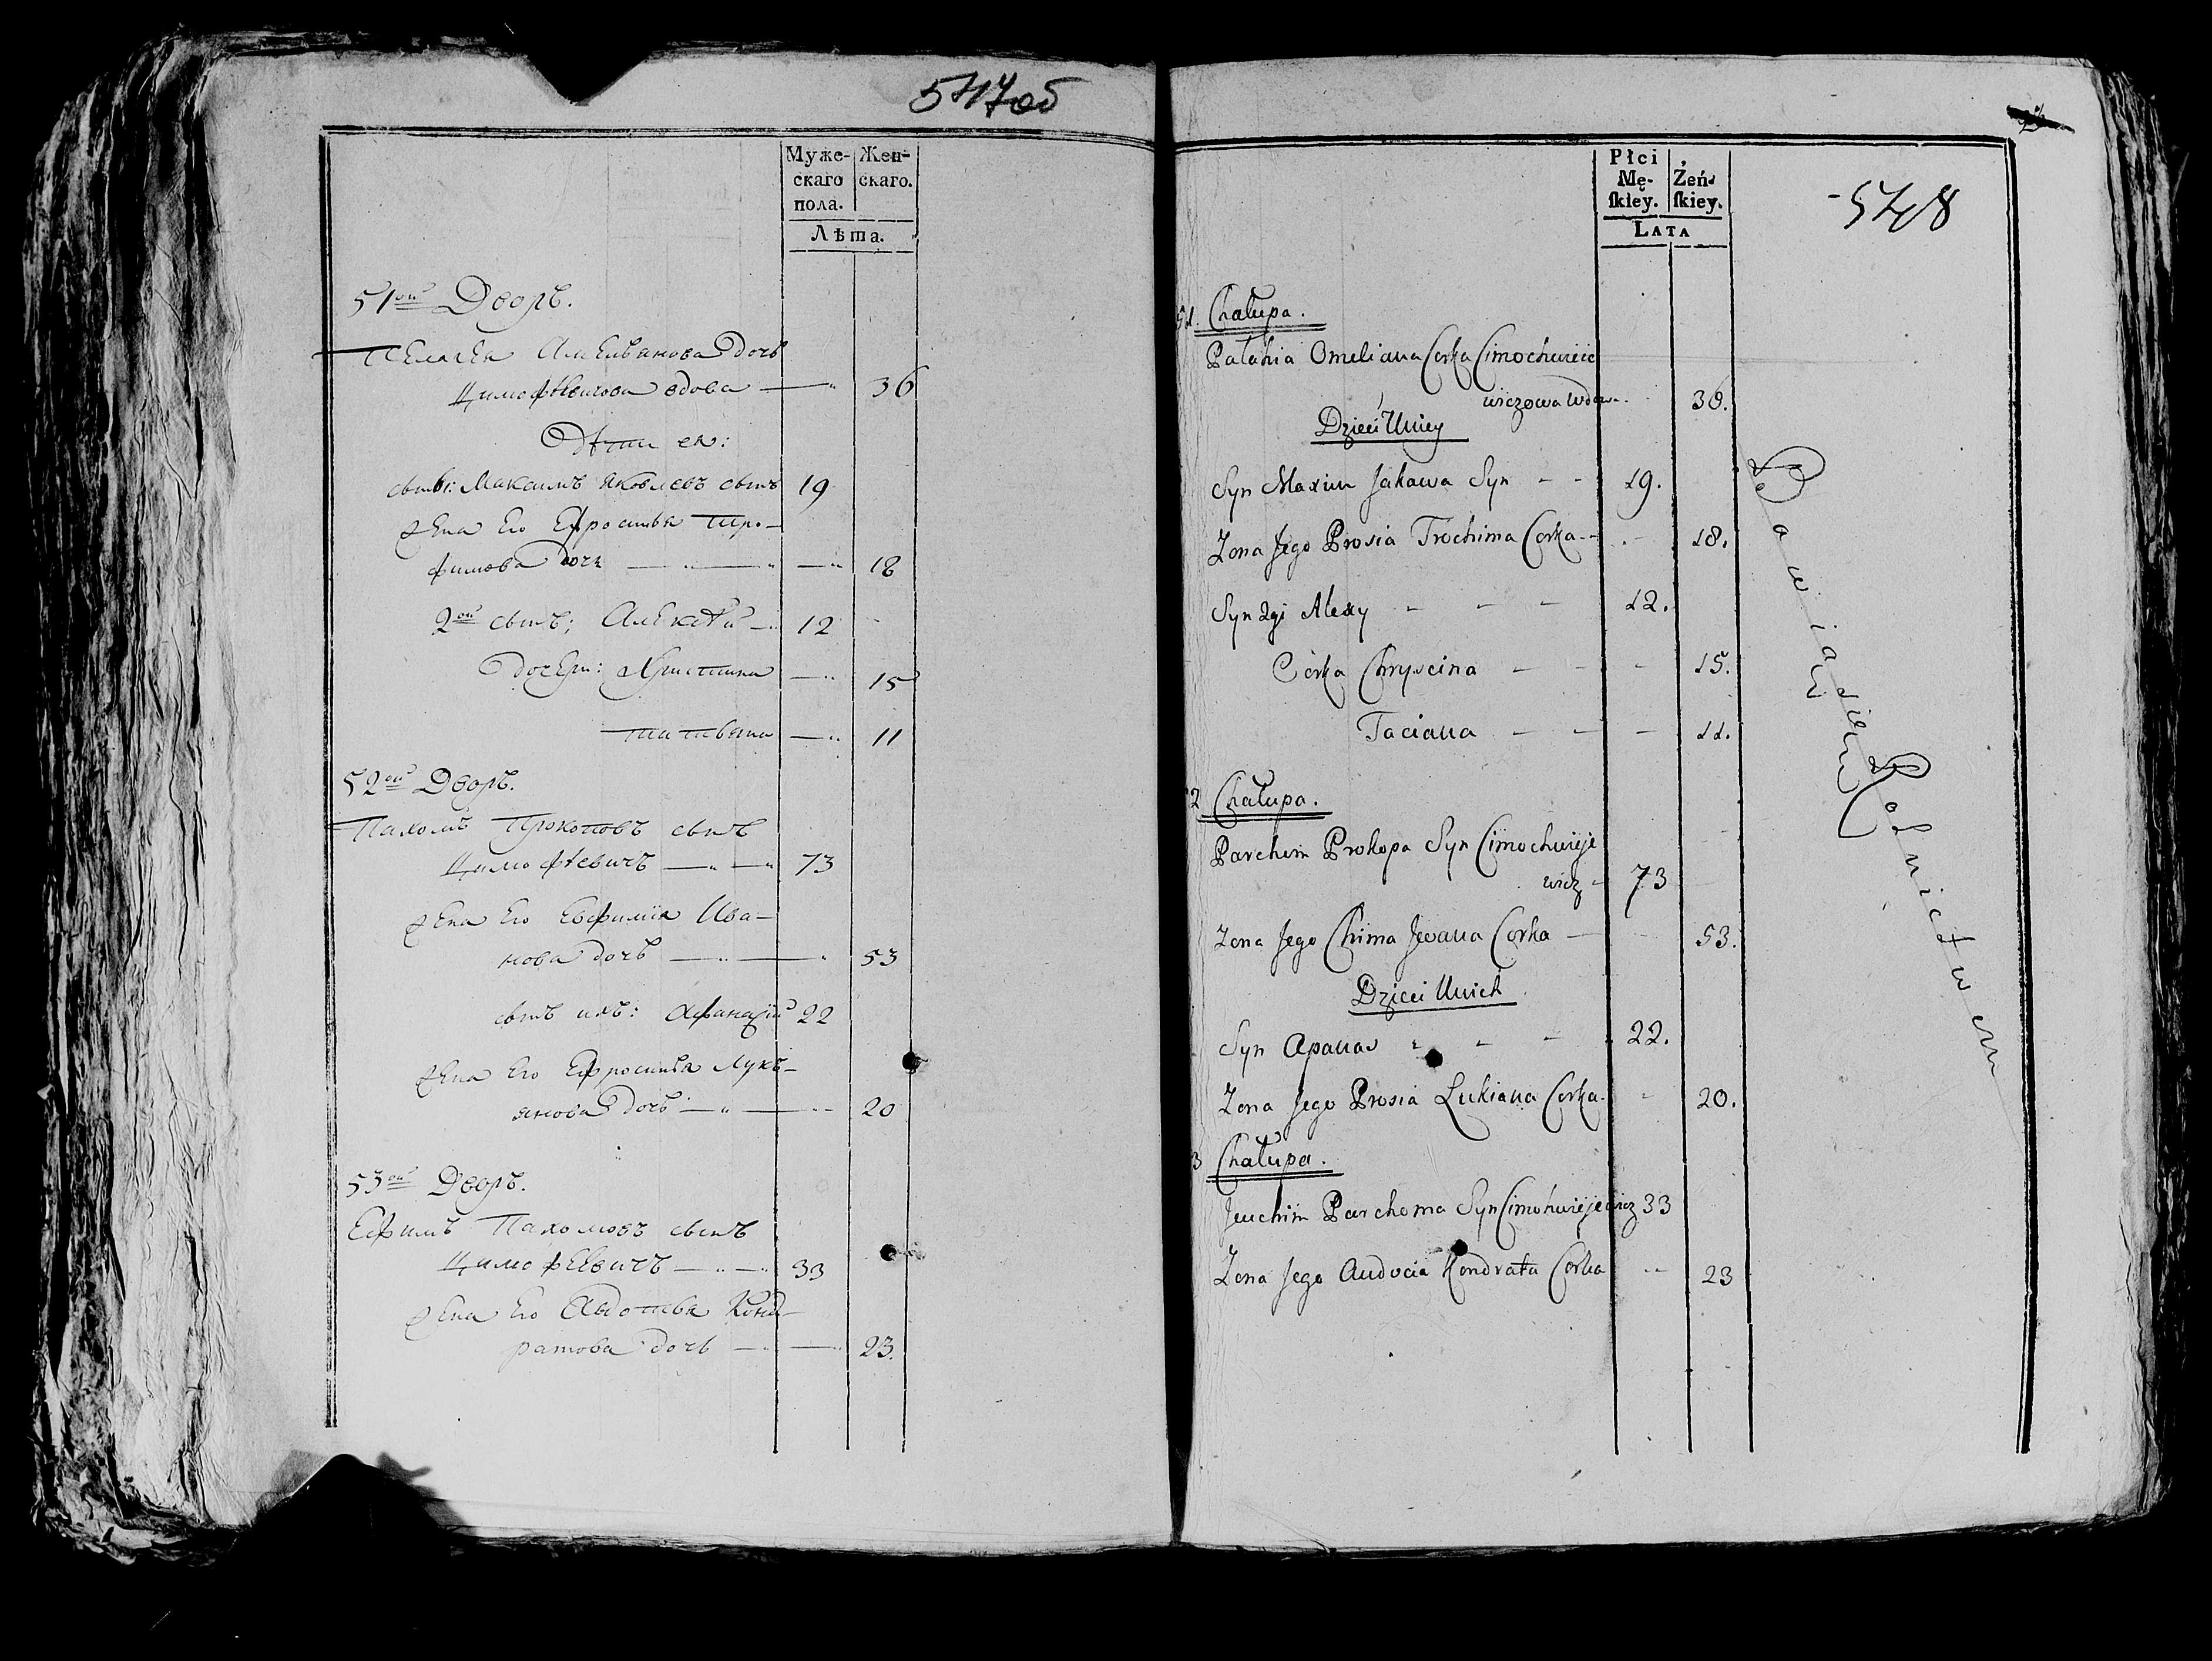 547об
Муже-
скаго
пола.
Жен-
скаго.
Лѣта.
51ой Дворъ.
Пелагея Амельянова дочь
Цимофѣевичова вдова — 36
Дѣти ея:
сынъ: Максимъ Яковлевъ сынъ 19
жена его Ефросинья Тро-
фимова дочь — — 18
2ой сынъ: Алексѣй — 12
дочери: Христина — 15
Татьяна — 11
52ой Дворъ.
Пахомъ Прокоповъ сынъ
Цимофѣевичъ — — 73
жена его Евфимія Ива-
нова дочь — — 53
сынъ ихъ: Афанасій 22
жена его Ефросинья Лукь-
янова дочь — — 20
53ой Дворъ.
Ефимъ Пахомовъ сынъ
Цимофеевичъ — — 33
жена его Авдотья Конд-
ратова дочь — — 23.
Płci
Mę-
ſkiey.
Żeń-
ſkiey.
LATA
548
51. Chałupa.
Pałahia Omeliana Corka Cimochwieie
wiczowa Wdowa. 36.
Dzieci Uniey
Syn Maxim Jakawa Syn - - 19.
Zona Jego Prosia Trochima Corka - - 18.
Syn 2gi Alexy - - - 12.
Córka Chryscina - - - 15.
Taciana - - - 11.
2 Chałupa.
Parchom Prokopa Syn Cimochwieje
wicz - 73
Zona Jego Chima Jwana Corka - 53.
Dzieci Unich
Syn Apanas - - - 22.
Zona Jego Prosia Łukiana Corka - - 20.
3 Chałupa.
Jeuchim Parchoma Syn Cimohwiejewicz 33
Zona Jego Audocia Kondrata Corka - 23
Bawią się Rolnictwem